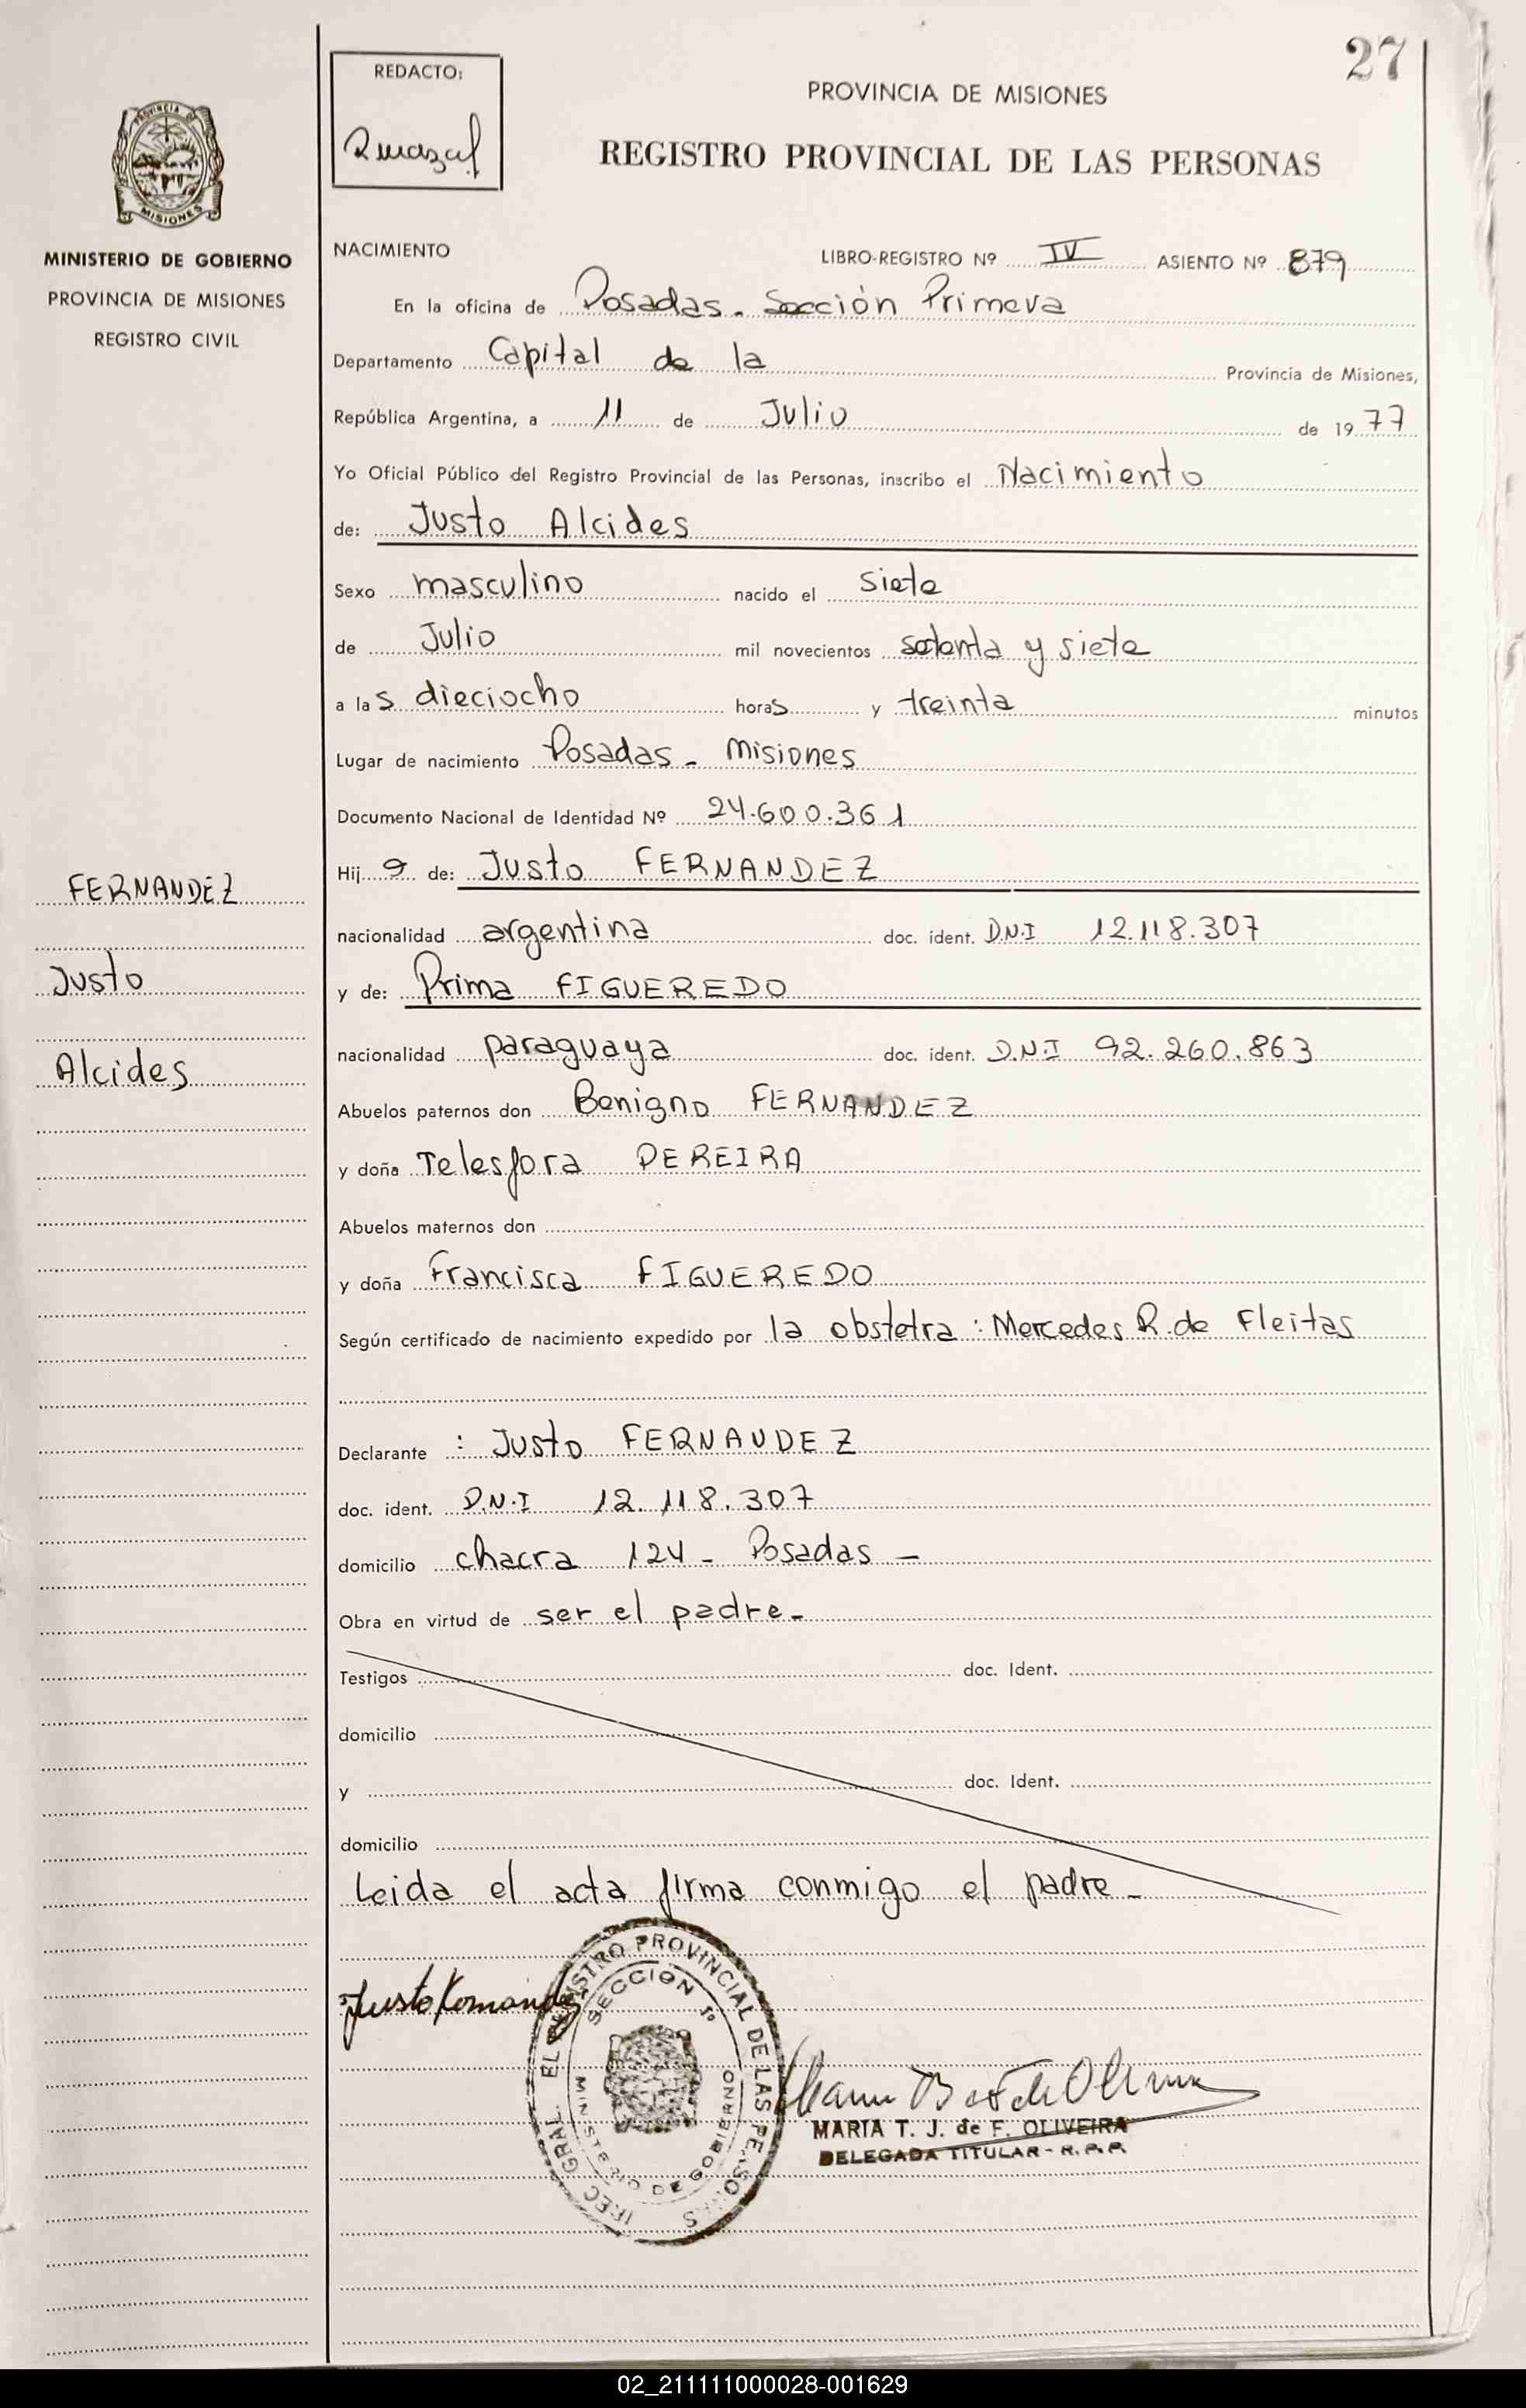 27
REDACTO:
PROVINCIA DE MISIONES
REGISTRO PROVINCIAL DE LAS PERSONAS
PROVINCIA DE
MISIONES
MINISTERIO DE GOBIERNO
PROVINCIA DE MISIONES
REGISTRO CIVIL
NACIMIENTO LIBRO-REGISTRO Nº IV ASIENTO Nº 879
En la oficina de Posadas - Sección Primera
Departamento Capital de la Provincia de Misiones,
República Argentina, a 11 de Julio de 19 77
Yo Oficial Público del Registro Provincial de las Personas, inscribo el Nacimiento
de: Justo Alcides
Sexo masculino nacido el siete
de Julio mil novecientos setenta y siete
a las dieciocho horas y treinta minutos
Lugar de nacimiento Posadas - Misiones
Documento Nacional de Identidad Nº 24.600.361
Hijo de: Justo FERNANDEZ
nacionalidad argentina doc. ident. D.N.I 12.118.307
y de: Prima FIGUEREDO
nacionalidad paraguaya doc. ident. D.N.I 92.260.863
Abuelos paternos don Benigno FERNANDEZ
y doña Telesfora PEREIRA
Abuelos maternos don
y doña Francisca FIGUEREDO
Según certificado de nacimiento expedido por la obstetra : Mercedes R. de Fleitas
Declarante : Justo FERNANDEZ
doc. ident. D.N.I 12.118.307
domicilio chacra 124 - Posadas -
Obra en virtud de ser el padre -
Testigos doc. Ident.
domicilio
y doc. Ident.
domicilio
Leida el acta firma conmigo el padre -
FERNANDEZ
Justo
Alcides
Justo Fernandez
REGISTRO PROVINCIAL DE LAS PERSONAS
SECCION 1º
MINISTERIO DE GOBIERNO
MARIA T. J. de F. OLIVEIRA
DELEGADA TITULAR - R. P. P.
02_211111000028-001629